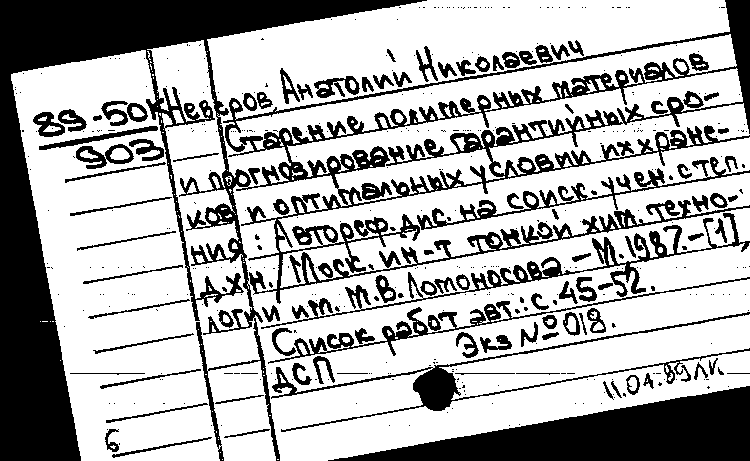 89-50К
903
Неверов, Анатолий Николаевич
Старение полимерных материалов
и прогнозирование гарантийных сро-
ков и оптимальных условий их хране-
ния : Автореф. дис. на соиск. учен. степ.
д.х.н. / Моск. ин-т тонкой хим. техно-
логии им. М.В. Ломоносова. - М. 1987. - [1],
Список работ авт.: с. 45-52.
ДСП Экз № 018.
11.04.89 ЛК.
6